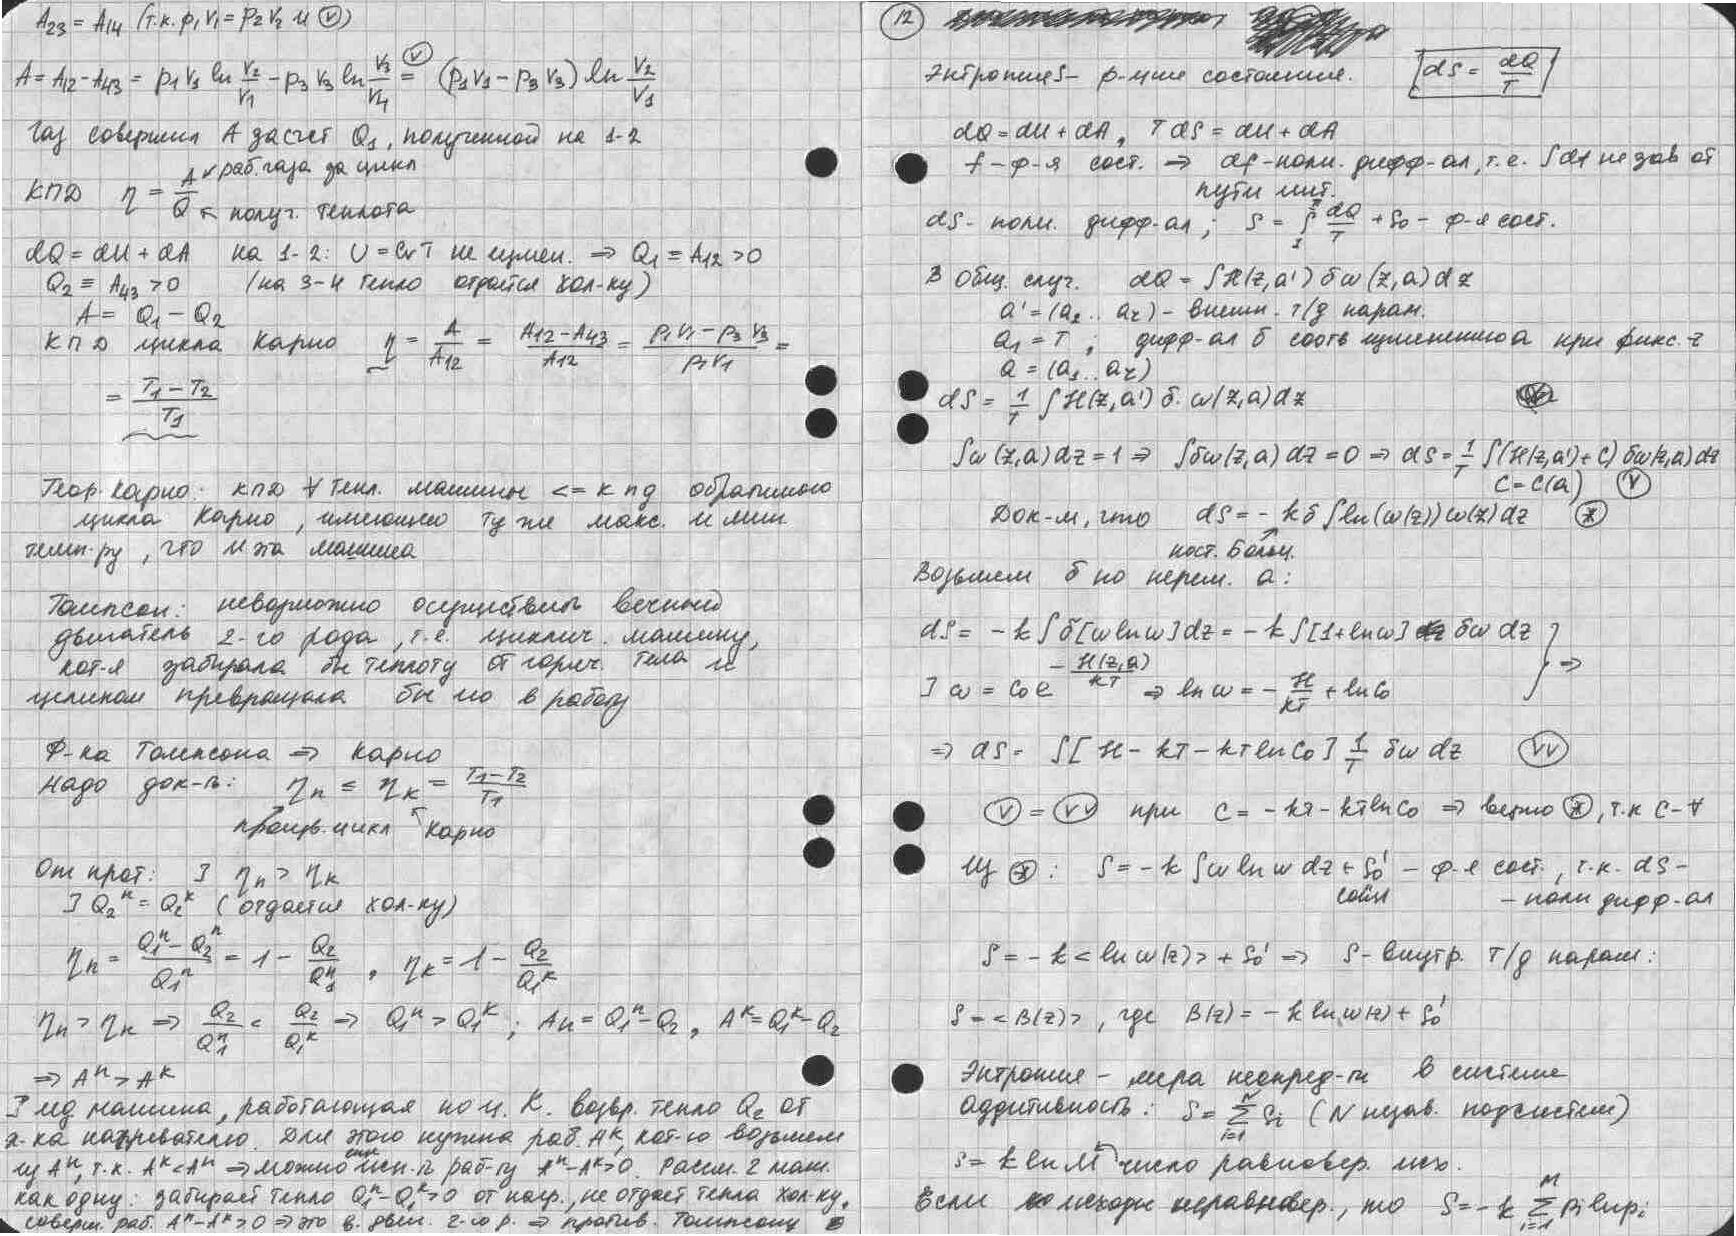 A₂₃ = A₁₄ (т.к. p₁V₁ = p₂V₂ и Ⓥ)
A = A₁₂ - A₄₃ = p₁V₁ ln V₂/V₁ - p₃V₃ ln V₃/V₄ =Ⓥ (p₁V₁ - p₃V₃) ln V₂/V₁
Газ совершил A за счет Q₁, полученной на 1-2
КПД η = A/Q ← раб. газа за цикл
← получ. теплота
dQ = dU + dA на 1-2: U = CᵥT не измен. ⇒ Q₁ = A₁₂ > 0
Q₂ = A₄₃ > 0 (на 3-4 тепло отдается хол-ку)
A = Q₁ - Q₂
КПД цикла Карно η = A/A₁₂ = (A₁₂ - A₄₃)/A₁₂ = (p₁V₁ - p₃V₃)/p₁V₁ =
= (T₁ - T₂)/T₁
Теор. Карно: КПД ∀ тепл. машины <= кпд обратимого
цикла Карно, имеющего ту же макс. и мин.
темп-ру, что и эта машина
Томпсон: невозможно осуществить вечный
двигатель 2-го рода, т.е. циклич. машину,
кот-я забирала бы теплоту от горяч. тела и
целиком превращала бы его в работу
Ф-ка Томпсона ⇒ Карно
Надо док-ть: ηп ≤ ηк = (T₁ - T₂)/T₁
произв. цикл Карно
От прот: ∃ ηп > ηк
∃ Q₂ⁿ = Q₂ᵏ (отдается хол-ку)
ηп = (Q₁ⁿ - Q₂ⁿ)/Q₁ⁿ = 1 - Q₂/Q₁ⁿ, ηк = 1 - Q₂/Q₁ᵏ
ηп > ηк ⇒ Q₂/Q₁ⁿ < Q₂/Q₁ᵏ ⇒ Q₁ⁿ > Q₁ᵏ; Aп = Q₁ⁿ - Q₂, Aᵏ = Q₁ᵏ - Q₂
⇒ Aⁿ > Aᵏ
∃ ид машина, работающая по ц. К. возвр. тепло Q₂ от
х-ка нагревателю. Для этого нужна раб. Aᵏ, кот-ю возьмем
из Aⁿ, т.к. Aᵏ < Aⁿ ⇒ можно исп-ть раб-ту Aⁿ - Aᵏ > 0. Рассм. 2 маш.
как одну: забирает тепло Q₁ⁿ - Q₁ᵏ > 0 от нагр., не отдает тепла хол-ку,
соверш. раб. Aⁿ - Aᵏ > 0 ⇒ это в. двиг. 2-го р. ⇒ против. Томпсону
12
Энтропия S - ф-ция состояния. dS = dQ/T
dQ = dU + dA, TdS = dU + dA
f - ф-я сост. ⇒ df - полн. дифф-ал, т.е. ∫df не зав от
пути инт.
dS - полн. дифф-ал; S = ∫₁² dQ/T + S₀ - ф-я сост.
В общ. случ. dQ = ∫H(z,a') δω(z,a)dz
a' = (a₂..aᵣ) - внешн. т/д парам.
a₁ = T; дифф-ал δ соотв изменению a при фикс. z
a = (a₁..aᵣ)
dS = 1/T ∫H(z,a') δ·ω(z,a)dz
∫ω(z,a)dz = 1 ⇒ ∫δω(z,a)dz = 0 ⇒ dS = 1/T ∫(H(z,a') + C) δω(z,a)dz
C = C(a) Ⓥ
Док-м, что dS = -kδ∫ln(ω(z))ω(z)dz ⊛
пост. Больц.
Возьмем δ по перем. a:
dS = -k∫δ[ω ln ω]dz = -k∫[1 + ln ω] δω dz
∃ ω = C₀e^(-H(z,a)/kT) ⇒ ln ω = -H/kT + ln C₀ } ⇒
⇒ dS = ∫[H - kT - kT ln C₀] 1/T δω dz (VV)
Ⓥ = (VV) при C = -kT - kT ln C₀ ⇒ верно ⊛, т.к C - ∀
Из ⊛: S = -k∫ω ln ω dz + S₀' - ф-я сост., т.к. dS -
const - полн дифф-ал
S = -k<ln ω(z)> + S₀' ⇒ S - внутр. т/д парам:
S = <B(z)>, где B(z) = -k ln ω(z) + S₀'
Энтропия - мера неопред-ти в системе
Аддитивность: S = Σᵢ₌₁ᴺ Sᵢ (N незав. подсистем)
S = k ln M число равновер. исх.
Если исходы неравновер., то S = -k Σᵢ₌₁ᴹ pᵢ ln pᵢ